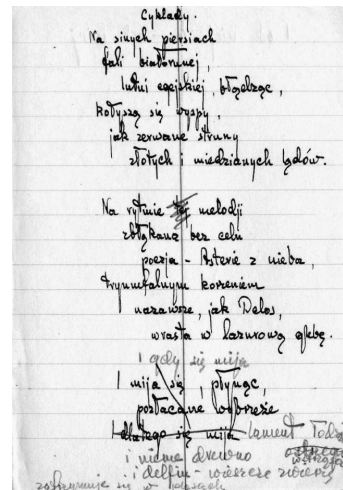 Cyklady.
Na sinych piersiach
fali białorunnej,
lutni egejskiej, błądząc,
kołyszą się wyspy,
jak zerwane struny
złotych i miedzianych lądów.
Na rytmie tej melodji
zbłąkana bez celu
poezja - Asterie z nieba,
tryumfalnym korzeniem
nazawsze, jak Delos,
wrasta w lazurową glebę.
i gdy się mija
I mija się, płynąc,
pozłacane wybrzeże
I dlatego się mija lament łodzi
i nieme drewno
i delfin - wieszcze zwierzę
się w